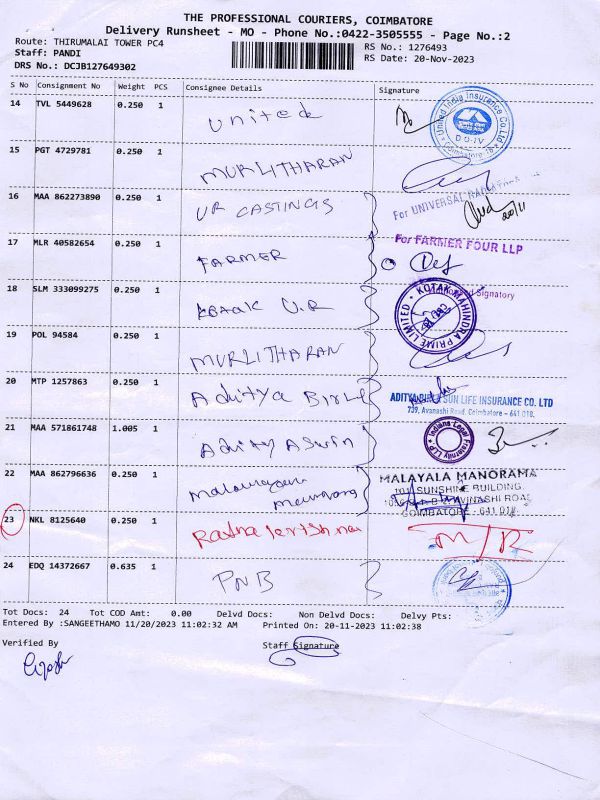 THE PROFESSIONAL COURIERS, COIMBATORE
Delivery Runsheet - MO - Phone No.:0422-3505555 - Page No.:2
Route: THIRUMALAI TOWER PC4
RS No.: 1276493
Staff: PANDI
RS Date: 20-Nov-2023
DRS No.: DCJB127649302
S No Consignment No Weight PCS Consignee Details Signature
14 TVL 5449628 0.250 1 United
United India Insurance Co. Ltd
D.O-IV
Coimbatore-18
15 PGT 4729781 0.250 1 MURLITHARAN
16 MAA 862273890 0.250 1 UR CASTINGS
For UNIVERSAL
20/11
17 MLR 40582654 0.250 1 FARMER
For FARMER FOUR LLP
Signatory
18 SLM 333099275 0.250 1
KOTAK MAHINDRA PRIME LIMITED
19 POL 94584 0.250 1 MURLITHARAN
20 MTP 1257863 0.250 1 Aditya Birl
ADITYA BIRLA SUN LIFE INSURANCE CO. LTD
739, Avanashi Road, Coimbatore - 641 018.
21 MAA 571861748 1.005 1 Adity Aswin
Indians Legal Fraternity LLP
22 MAA 862796636 0.250 1
MALAYALA MANORAMA
SUNSHINE BUILDING
AVINASHI ROAD
COIMBATORE - 641 018
23 NKL 8125640 0.250 1 Ratna krishnan
M/R
24 EDQ 14372667 0.635 1 PNB
Tot Docs: 24 Tot COD Amt: 0.00 Delvd Docs: Non Delvd Docs: Delvy Pts:
Entered By :SANGEETHAMO 11/20/2023 11:02:32 AM Printed On: 20-11-2023 11:02:38
Verified By
Staff Signature